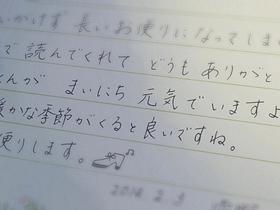 いかけず 長いお便りになってしま
で 読んでくれて どうも ありがと
くんが まいにち 元気でいますよ
暖かな季節がくると良いですね。
便りします。
2014 2 3